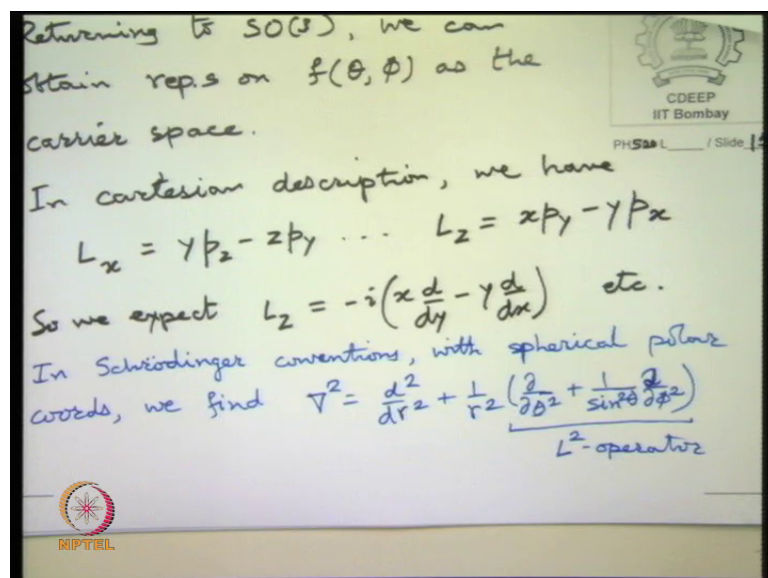 Returning to SO(3), we can
obtain rep.s on f(θ, φ) as the
carrier space.
CDEEP
IIT Bombay
PH520 L_____ / Slide 15
In cartesian description, we have
L_x = y p_z - z p_y ... L_z = x p_y - y p_x
So we expect L_z = -i(x d/dy - y d/dx) etc.
In Schrodinger conventions, with spherical polar
coords, we find ∇² = d²/dr² + 1/r² (∂/∂θ² + 1/sin²θ ∂/∂φ²)
L²-operator
NPTEL